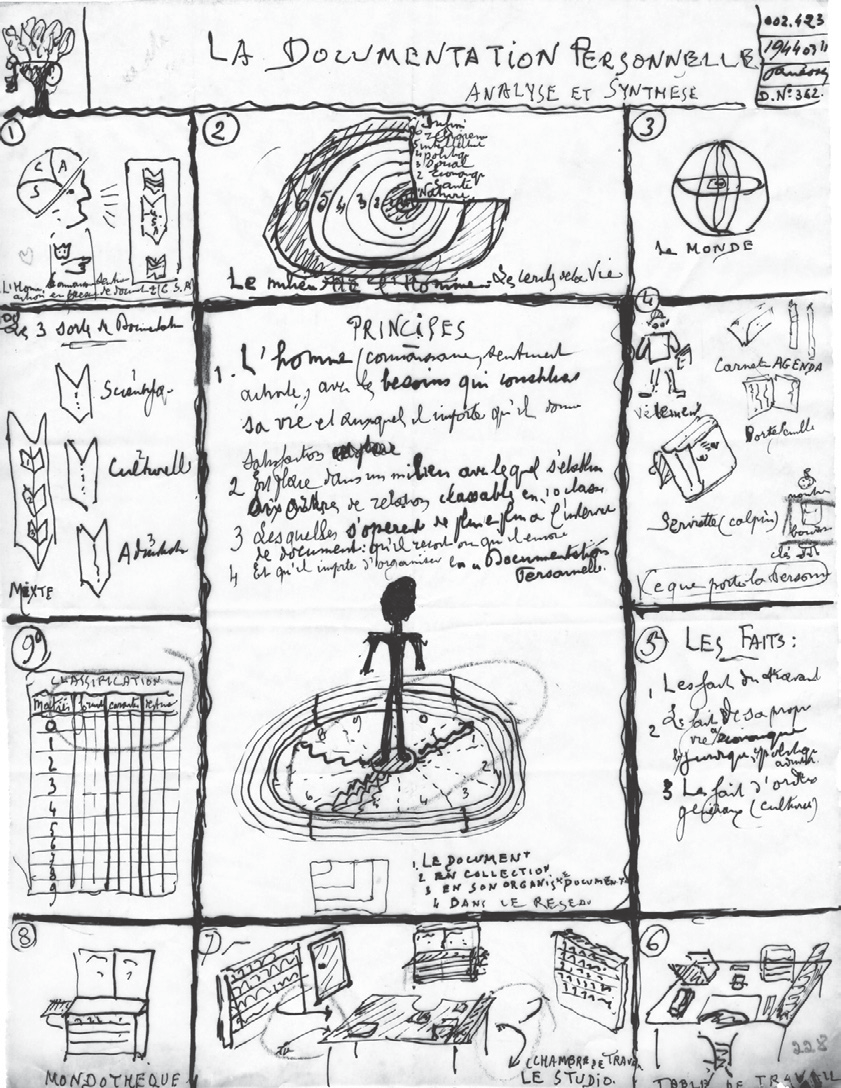 LA DOCUMENTATION PERSONNELLE
ANALYSE ET SYNTHESE
002.423
1944 03 11
D. N° 362.
1
C A
S
C S A
2
Infini
5 intellectuel
4 politiq
3 social
2 économiq
Santé
Nature
6 5 4 3 2
Le milieu de l'Homme Les cercles de la Vie
3
Le MONDE
Les 3 sortes de
Scientifiq
2
Culturelle
3
Administr
1
2
3
MIXTE
PRINCIPES
1. L'homme (connaissance, sentiment
activité, avec les besoins qui constituent
sa vie et auxquels il importe qu'il donne
satisfaction
2 Est placé dans un milieu avec lequel s'établissent
de relations classables en 10 classes
3 Lesquelles s'opèrent de plus en plus à l'intervention
de document: qu'il reçoit ou qu'il envoie
4 Et qu'il importe d'organiser en Documentation
Personnelle.
4
Vêtement
Carnet AGENDA
Portefeuille
Serviette (calpin)
montre
bourse
clé
Ce que porte la Personne
5
LES FAITS:
1, Les faits du travail
2 Les faits de sa propre
vie économique
juridique, politique
3 Les faits d'ordre
généraux (culture)
9
CLASSIFICATION
Matières
0
1
2
3
4
5
6
7
8
9
9 0
2
4 3
1. LE DOCUMENT
2 EN COLLECTION
3 EN SON ORGANISME DOCUMENT
4 DANS LE RESEAU
8
MONDOTHEQUE
7
CHAMBRE DE TRAVAIL
LE STUDIO.
6
228
TABLE DE TRAVAIL